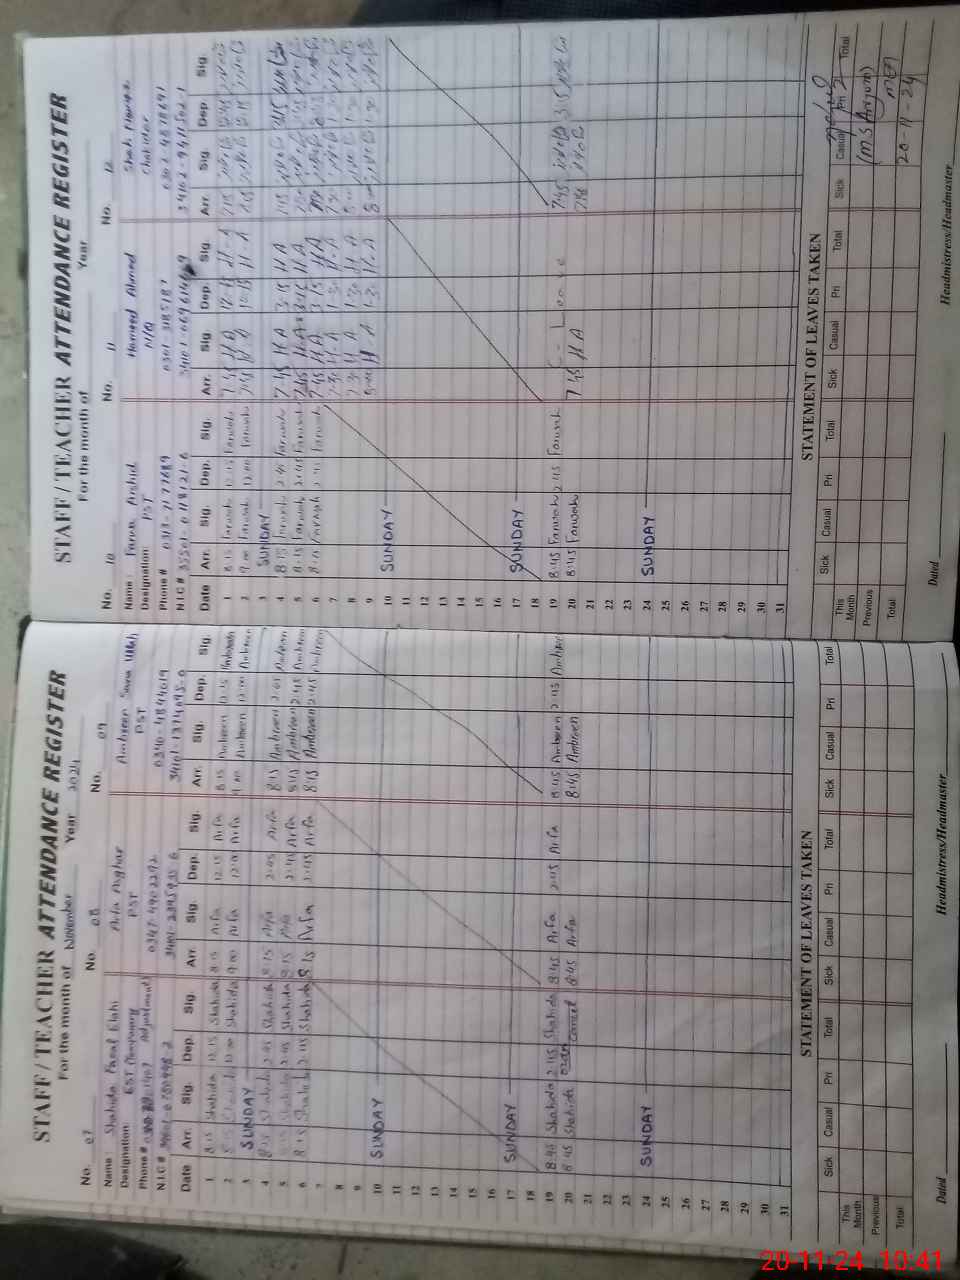 STAFF / TEACHER ATTENDANCE REGISTER
For the month of November Year 2024
No. 07 No. 08 No. 09
Name : Shahida Fazal Elahi Arfa Asghar Ambreen Sana Ullah
Designation: EST (Temporary Adjustment) PST PST
Phone # 0347-4902292 0340-4844019
N.I.C #
Date Arr. Sig. Dep. Sig. Arr. Sig. Dep. Sig. Arr. Sig. Dep. Sig.
1 8:15 Shahida 12:15 Shahida 8:15 Arfa 12:15 Arfa 8:15 Ambreen 12:15 Ambreen
2 Shahida 12:00 Shahida 9:00 Arfa 12:00 Arfa 9:00 Ambreen 12:00 Ambreen
3 SUNDAY
4 8:15 Shahida 2:45 Shahida 8:15 Arfa 2:45 Arfa 8:15 Ambreen 2:45 Ambreen
5 Shahida 2:45 Shahida 8:15 Arfa 2:45 Arfa 8:15 Ambreen 2:45 Ambreen
6 8:15 Shahida 2:45 Shahida 8:15 Arfa 2:45 Arfa 8:15 Ambreen 2:45 Ambreen
7
8
9
10 SUNDAY
11
12
13
14
15
16
17 SUNDAY
18
19 8:45 Shahida 2:45 Shahida 8:45 Arfa 2:45 Arfa 8:45 Ambreen 2:45 Ambreen
20 8:45 Shahida 8:45 Arfa 8:45 Ambreen
21
22
23
24 SUNDAY
25
26
27
28
29
30
31
STATEMENT OF LEAVES TAKEN
Sick Casual Pri Total Sick Casual Pri Total Sick Casual Pri Total
This Month
Previous
Total
Dated Headmistress/Headmaster
STAFF / TEACHER ATTENDANCE REGISTER
For the month of Year
No. 10 No. 11 No. 12
Name : Farwa Arshid Hameed Ahmed Shah Nawaz
Designation: PST N/Q Chokidar
Phone # 0313-7177689 0301-3185187 0302-4878691
N.I.C # 35501-0118121-6 34102-9411502-1
Date Arr. Sig. Dep. Sig. Arr. Sig. Dep. Sig. Arr. Sig. Dep. Sig.
1 8:15 Farwah 12:15 Farwah 7:45 H A 12:15 H-A 7:45 12:15
2 9:00 Farwah 12:00 Farwah 7:45 H A 12:15 H-A 7:45 12:15
3 SUNDAY
4 8:15 Farwah 2:45 Farwah 7:45 H A 3:15 H A 7:45 3:15
5 8:15 Farwah 2:45 Farwah 7:45 H A 3:15 H A
6 8:15 Farwah 2:45 Farwah 7:45 H A 3:15 H A
7 7:30 H A 1:30 H-A 7:30 1:30
8 7:30 H A 1:30 H A 1:30
9 8:00 H-A 1:30 H-A 8:00 1:30
10 SUNDAY
11
12
13
14
15
16
17 SUNDAY
18
19 8:45 Farwah 2:45 Farwah Leave 7:45 3:15
20 8:45 Farwah 7:45 H A
21
22
23
24 SUNDAY
25
26
27
28
29
30
31
STATEMENT OF LEAVES TAKEN
Sick Casual Pri Total Sick Casual Pri Total Sick Casual Pri Total
This Month
Previous
Total
20-11-24
Dated Headmistress/Headmaster
20-11-24 10:41